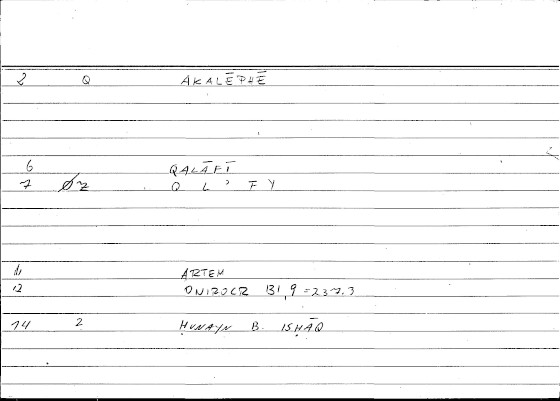 2 Q AKALĒPHĒ
6 QALĀFĪ
7 Øz Q L ' F Y
11 ARTEM
12 ONIROCR B1,9 = 237.3
14 2 ḤUNAYN B. ISḤĀQ